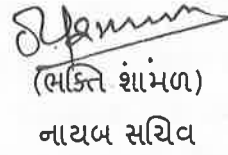 (ભક્તિ શાંમળ)
નાયબ સચિવ